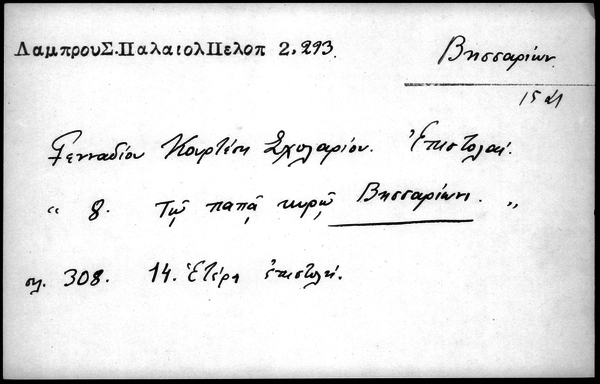 ΛαμπρουΣ.ΠαλαιολΠελοπ 2.293.
Βησσαρίων
15
Γενναδίου Κουρτέση Σχολαρίου. Ἐπιστολαί.
“ 8. τῷ παπᾷ κυρῷ Βησσαρίωνι. „
σλ. 308. 14. Ἑτέρα ἐπιστολή.